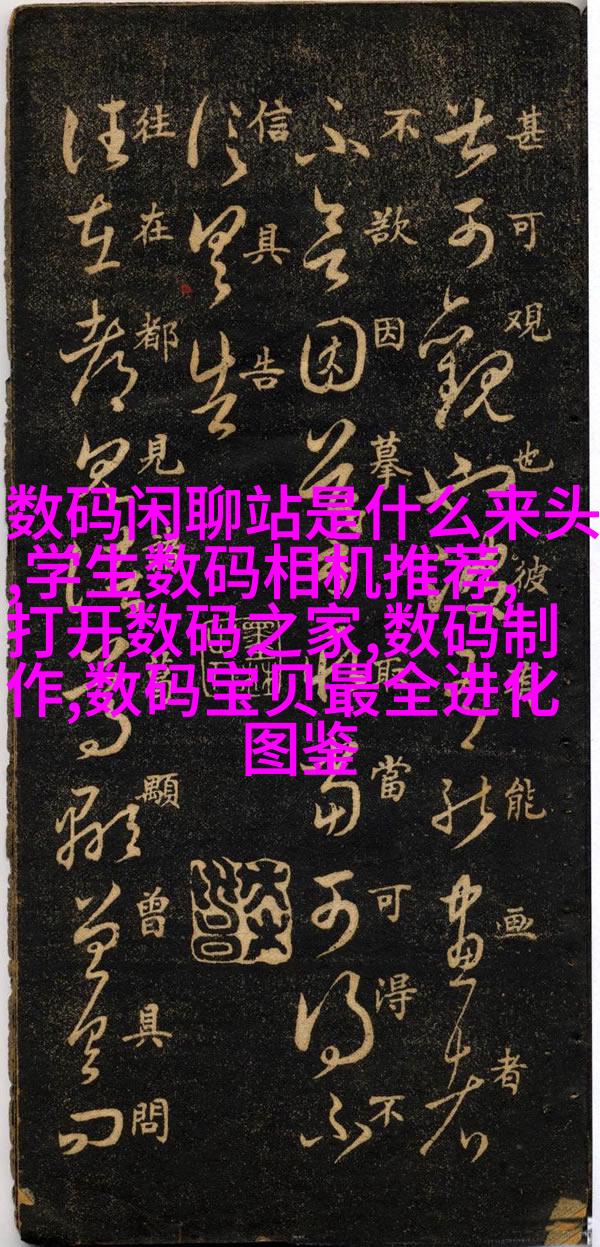 数码闲聊站是什么来头
,学生数码相机推荐,
打开数码之家,数码制
作,数码宝贝最全进化
图鉴
甚可观也彼有能画者
不欲因摹取當可得不
信具告
往在都見諸葛顯曾具問